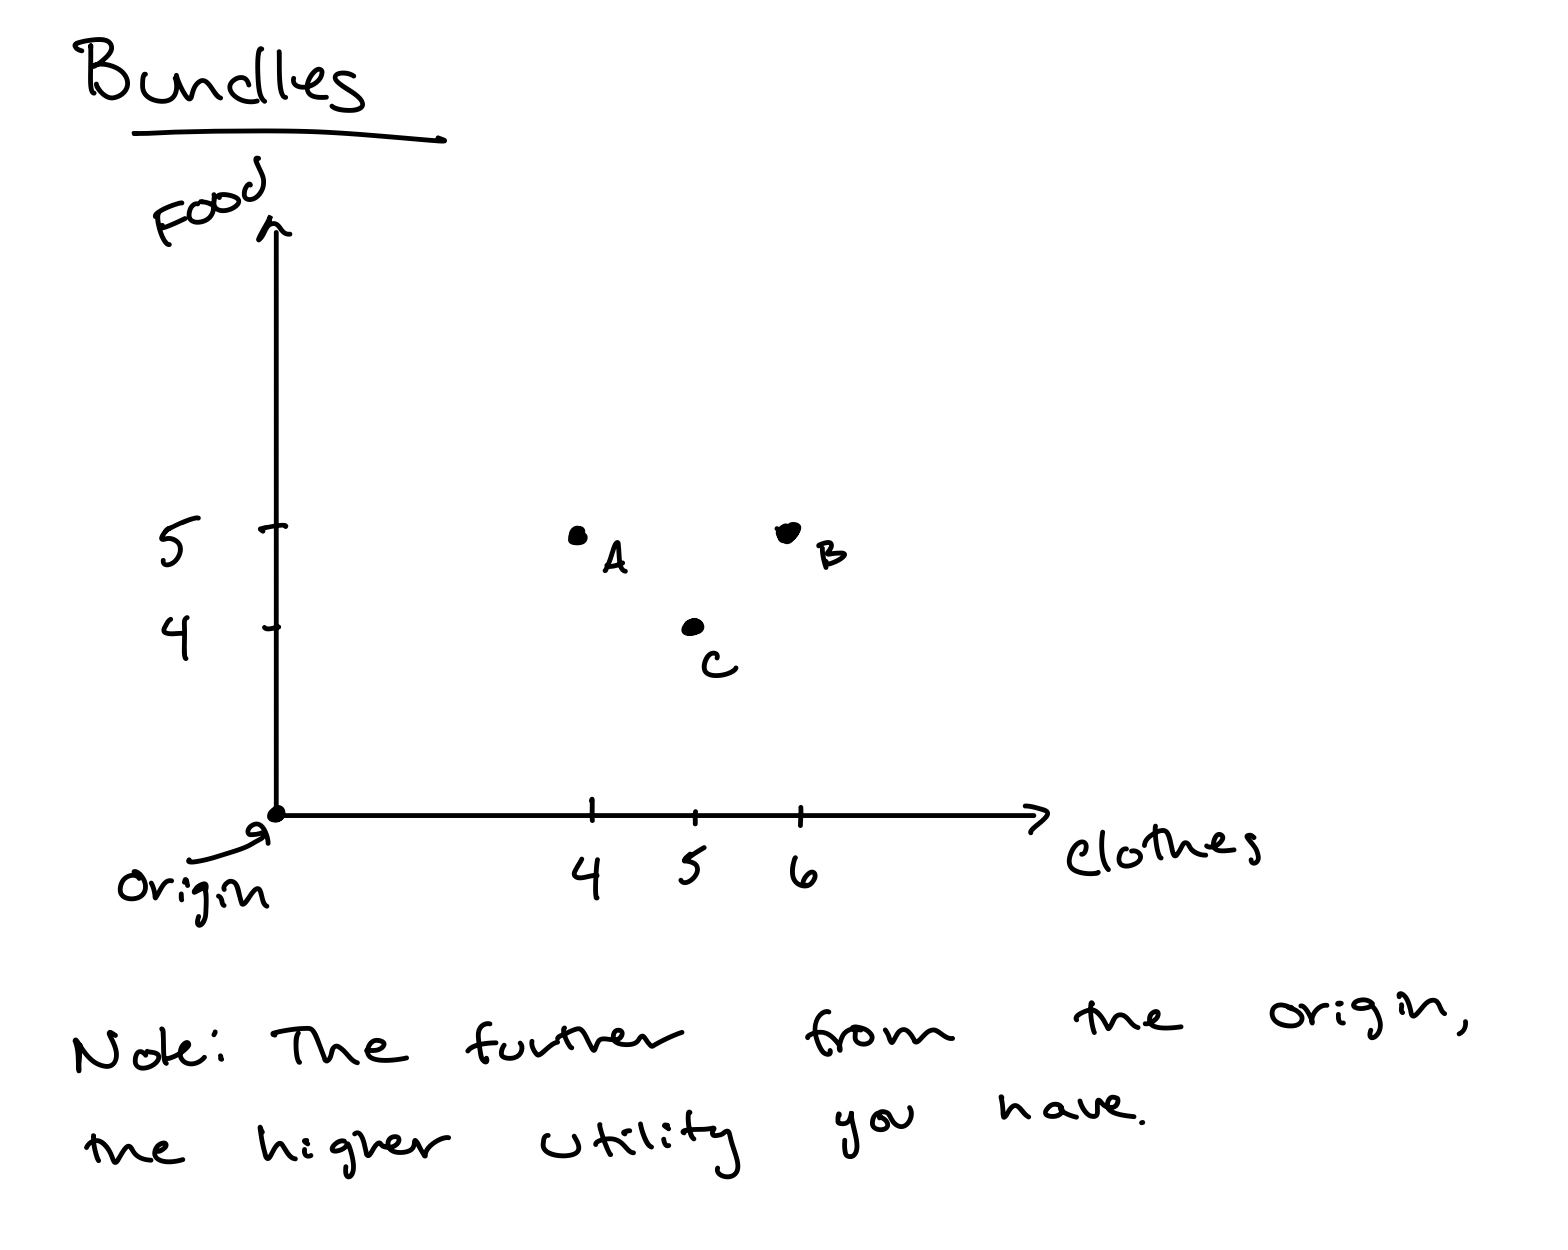 Bundles
Food
5
A
B
4
C
clothes
4 5 6
origin
Note: The further from the origin,
the higher utility you have.